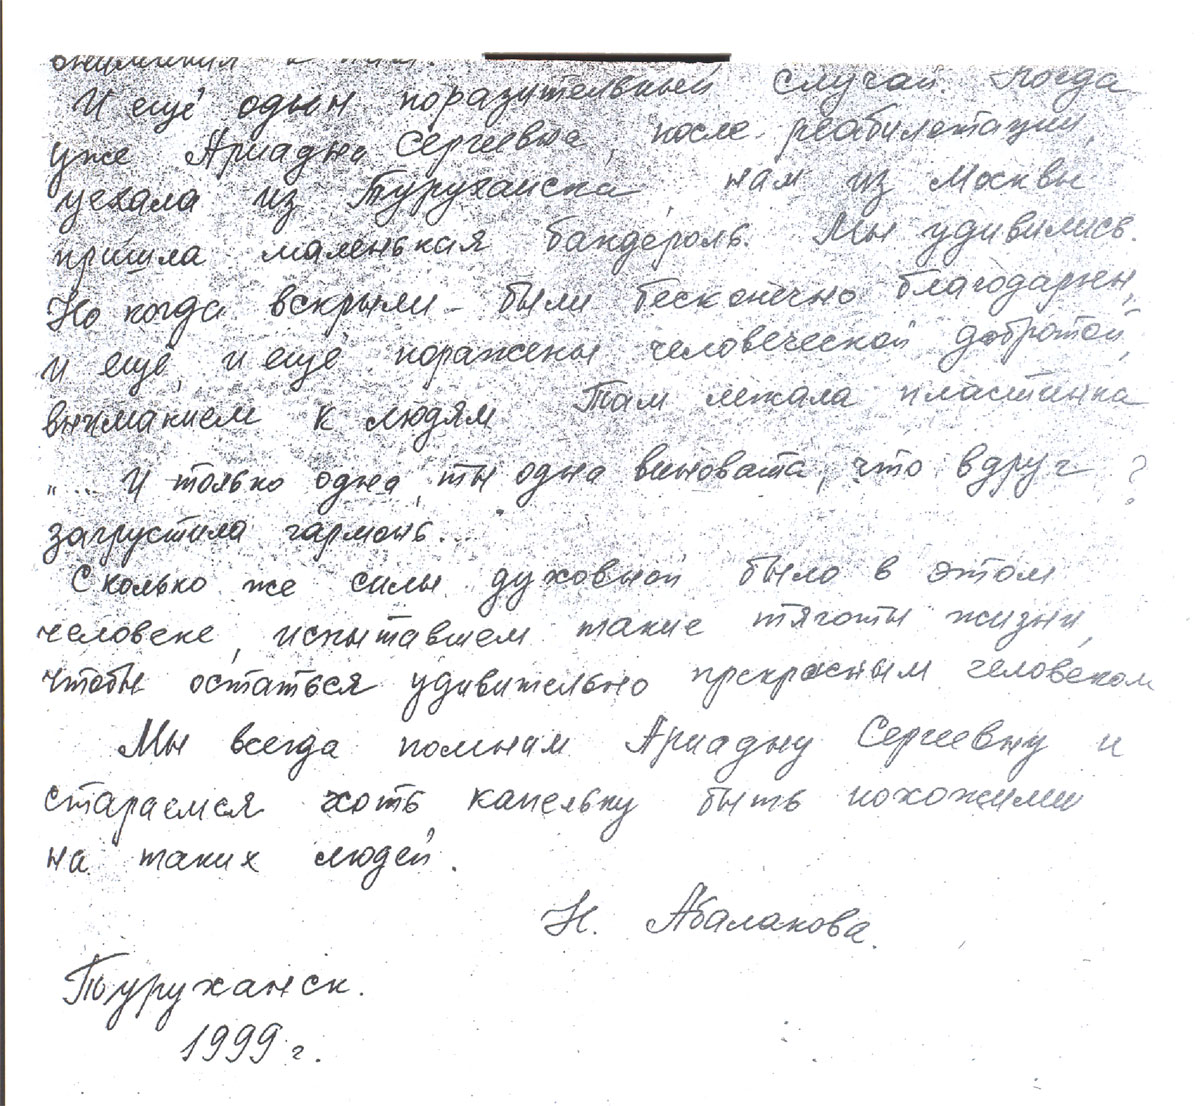 внимания к нам.
И ещё один поразительный случай. Когда
уже Ариадна Сергеевна, после реабилитации,
уехала из Туруханска нам из Москвы
пришла маленькая бандероль. Мы удивились.
Но когда вскрыли – были бесконечно благодарны,
и ещё, и ещё поражены человеческой добротой,
вниманием к людям Там лежала пластинка
„... И только одна, ты одна виновата, что вдруг ?
загрустила гармонь...
Сколько же силы духовной было в этом
человеке, испытавшем такие тяготы жизни,
чтобы остаться удивительно прекрасным человеком
Мы всегда помним Ариадну Сергеевну и
стараемся хоть капельку быть похожими
на таких людей.
Н. Абалакова.
Туруханск.
1999 г.